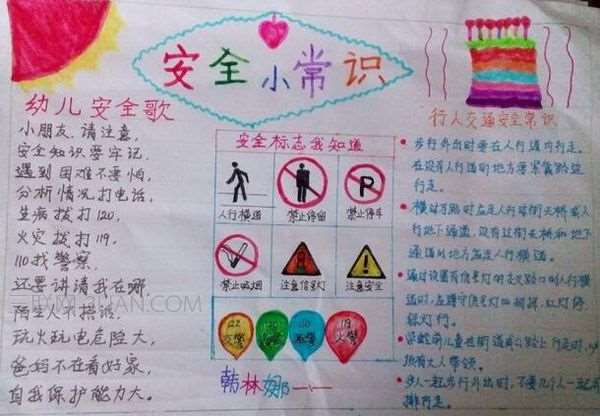 安全小常识
幼儿安全歌
小朋友,请注意,
安全知识要牢记,
遇到困难不要怕,
分析情况打电话,
生病拨打120,
火灾拨打119,
110找警察,
还要讲清我在哪,
陌生人不搭话,
玩火玩电危险大,
爸妈不在看好家,
自我保护能力大。
安全标志我知道
人行横道
禁止停留
P
禁止停车
禁止吸烟
注意信号灯
注意安全
122
交警
120
急救
110
119
火警
韩林娜
行人交通安全常识
步行外出时要在人行道内行走。
在没有人行道的地方要靠路边
行走。
横过马路时应走人行过街天桥或人
行地下通道,没有过街天桥和地下
通道的地方应走人行横道。
通过设置有信号灯的
人行横道
时,应遵守信号灯的
红灯停
绿灯行。
学龄前儿童在街道或公路上行走时,
有大人带领。
多人一起步行外出时,不要几个人一起
排行走。